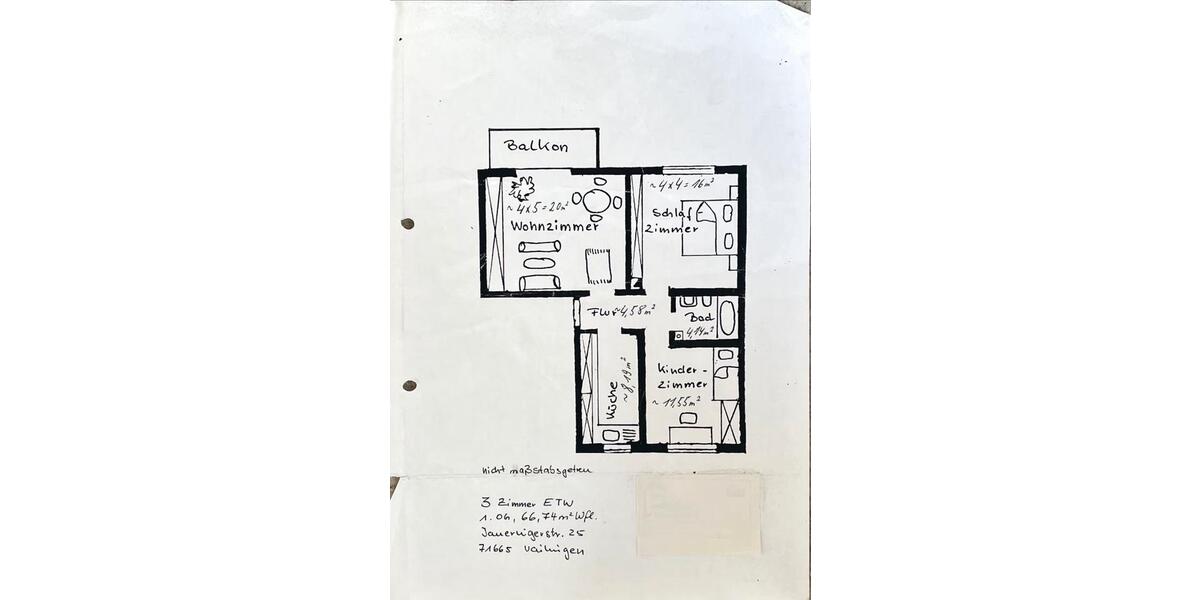 Balkon
~ 4x5 = 20m²
Wohnzimmer
~ 4x4 = 16m²
Schlaf
zimmer
Flur ~ 4,58m²
Bad
4,14m²
Küche
~ 8,19m²
Kinder-
zimmer
~ 11,55m²
nicht maßstabsgetreu
3 Zimmer ETW
1. OG, 66,74m² Wfl.
25
71665 Vaihingen